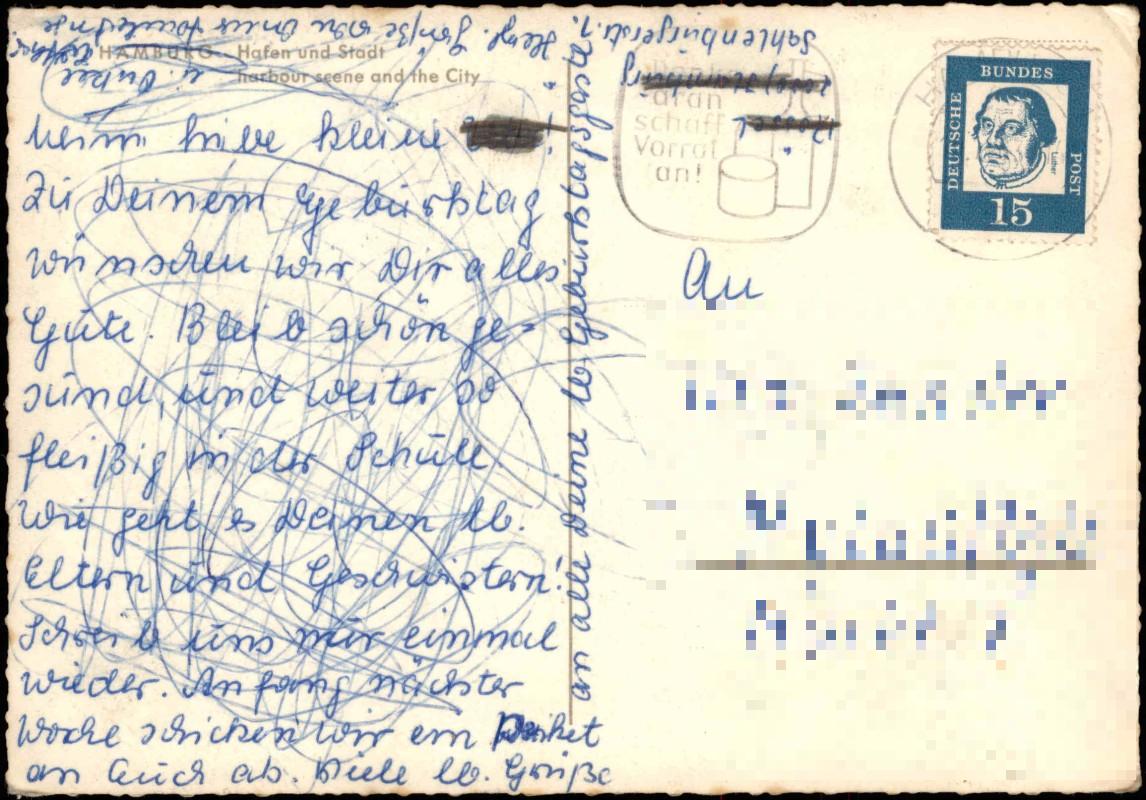 HAMBURG - Hafen und Stadt
harbour scene and the City
meine liebe kleine
Zu Deinem Geburtstag
wünschen wir Dir alles
Gute. Bleib schön ge=
sund, und weiter so
fleißig in der Schule.
Wie geht es Deinen lb.
Eltern und Geschwistern!
Schreib uns nur einmal
wieder. Anfang nächster
Woche schicken wir ein Paket
an Euch ab. Viele lb. Grüße
an alle Deine lb. Geburtstagsgäste
Herzl. Grüße von
u. Onkel
Sahlenburgerstr. 1.
daran
schaff
Vorrat
an!
DEUTSCHE
BUNDES
POST
Luther
15
An